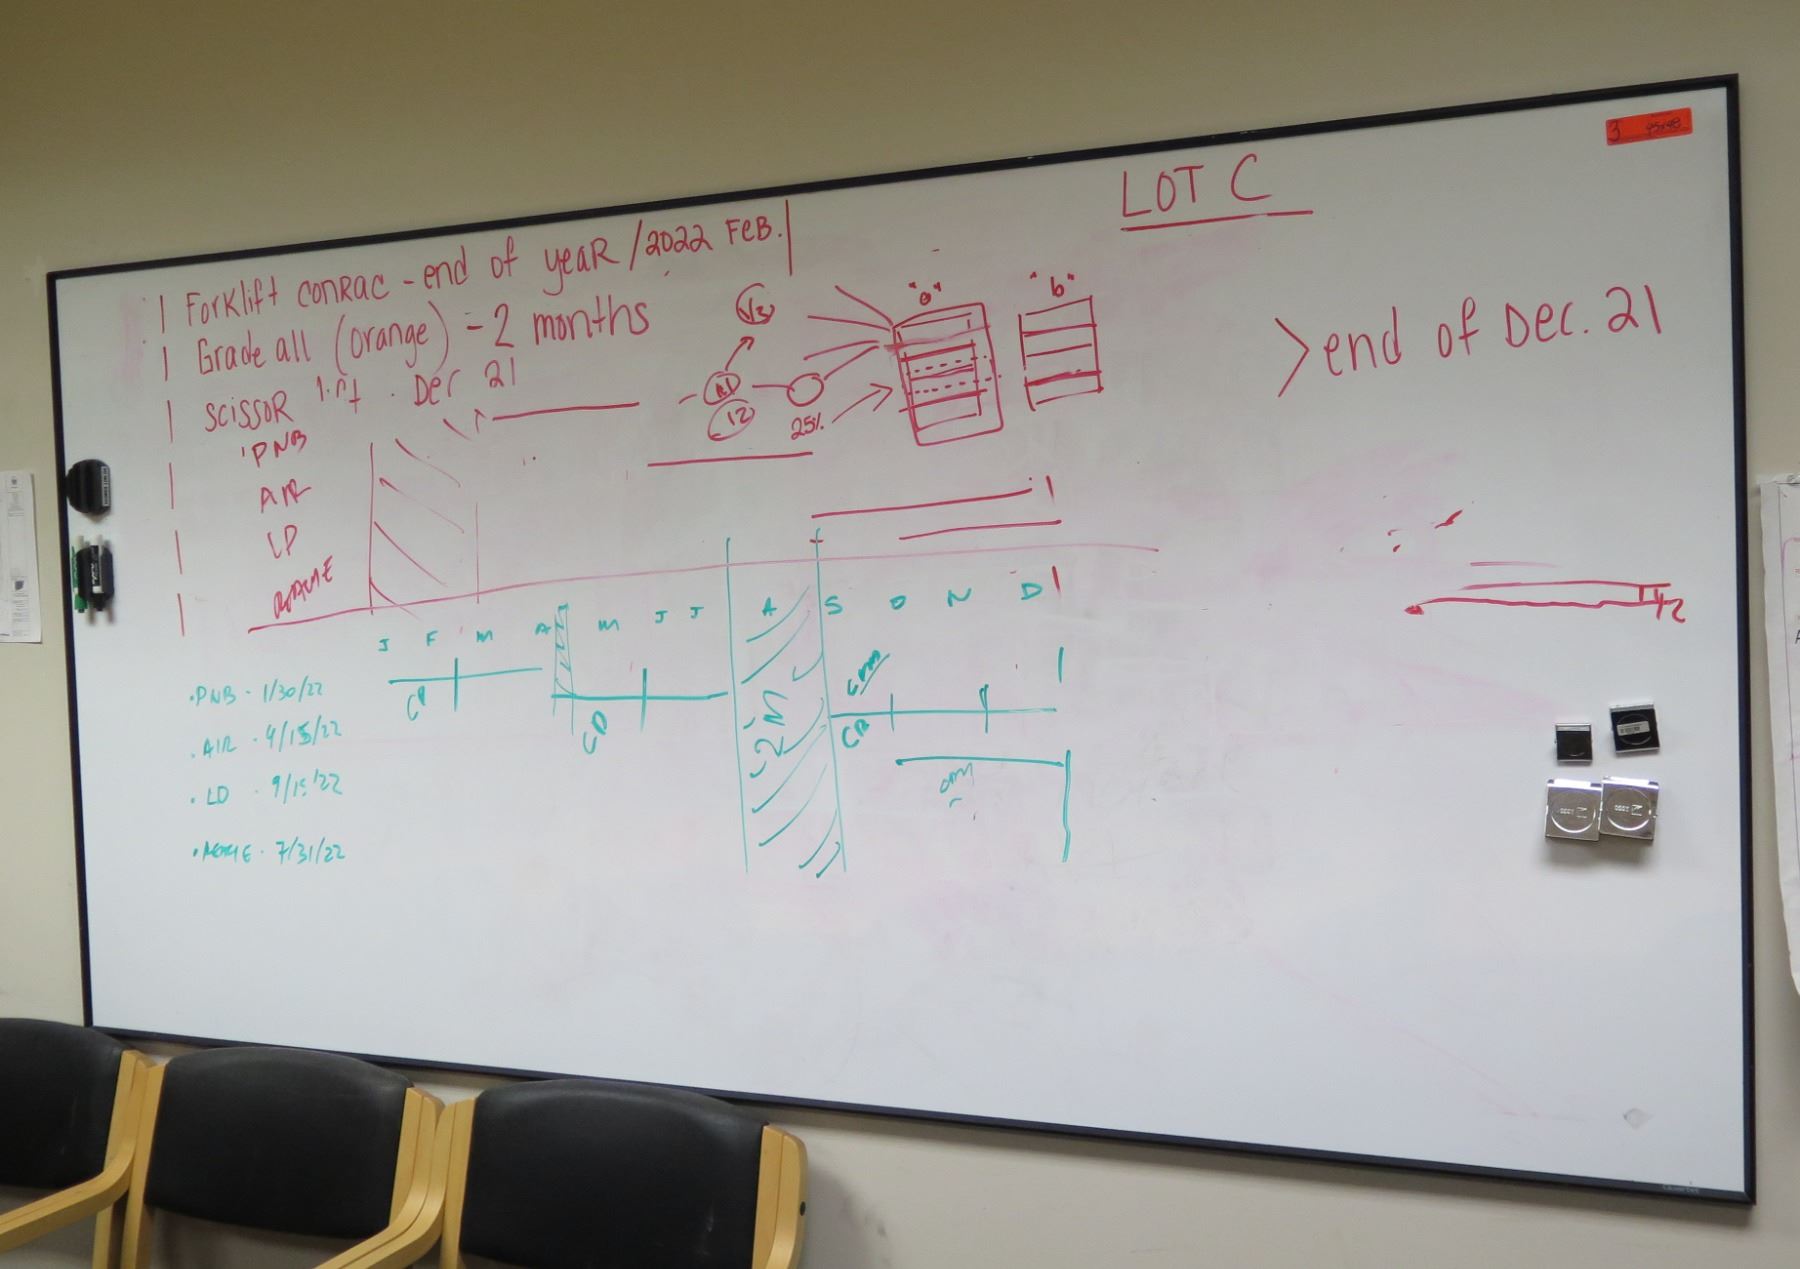 LOT C
Forklift conRAC - end of yeaR /2022 FeB.
Grade all (orange) - 2 months
scissoR lift . Dec 21
PNB
AIR
LD
> end of Dec. 21
"a"
"b"
1/3
12
25%
J F M A M J J A S O N D
• PNB - 1/30/22
• AIR - 4/15/22
• LD - 9/15/22
7/31/22
CD
CD
2M
CD
1/2
3